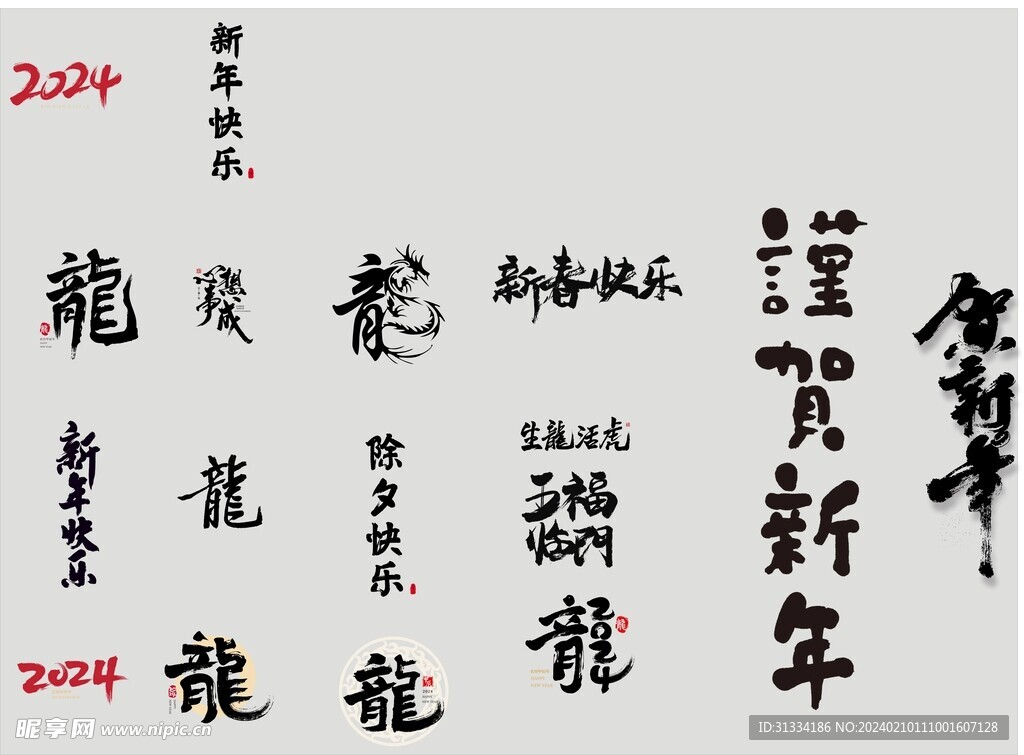 2024
新年快乐
龍
心想
事成
龍
新春快乐
謹賀新年
贺新年
新年快乐
龍
除夕快乐
生龍活虎
五福
临門
2024
龍
龍
2024
龍
2024
昵享网 www.nipic.cn
ID:31334186 NO:20240210111001607128